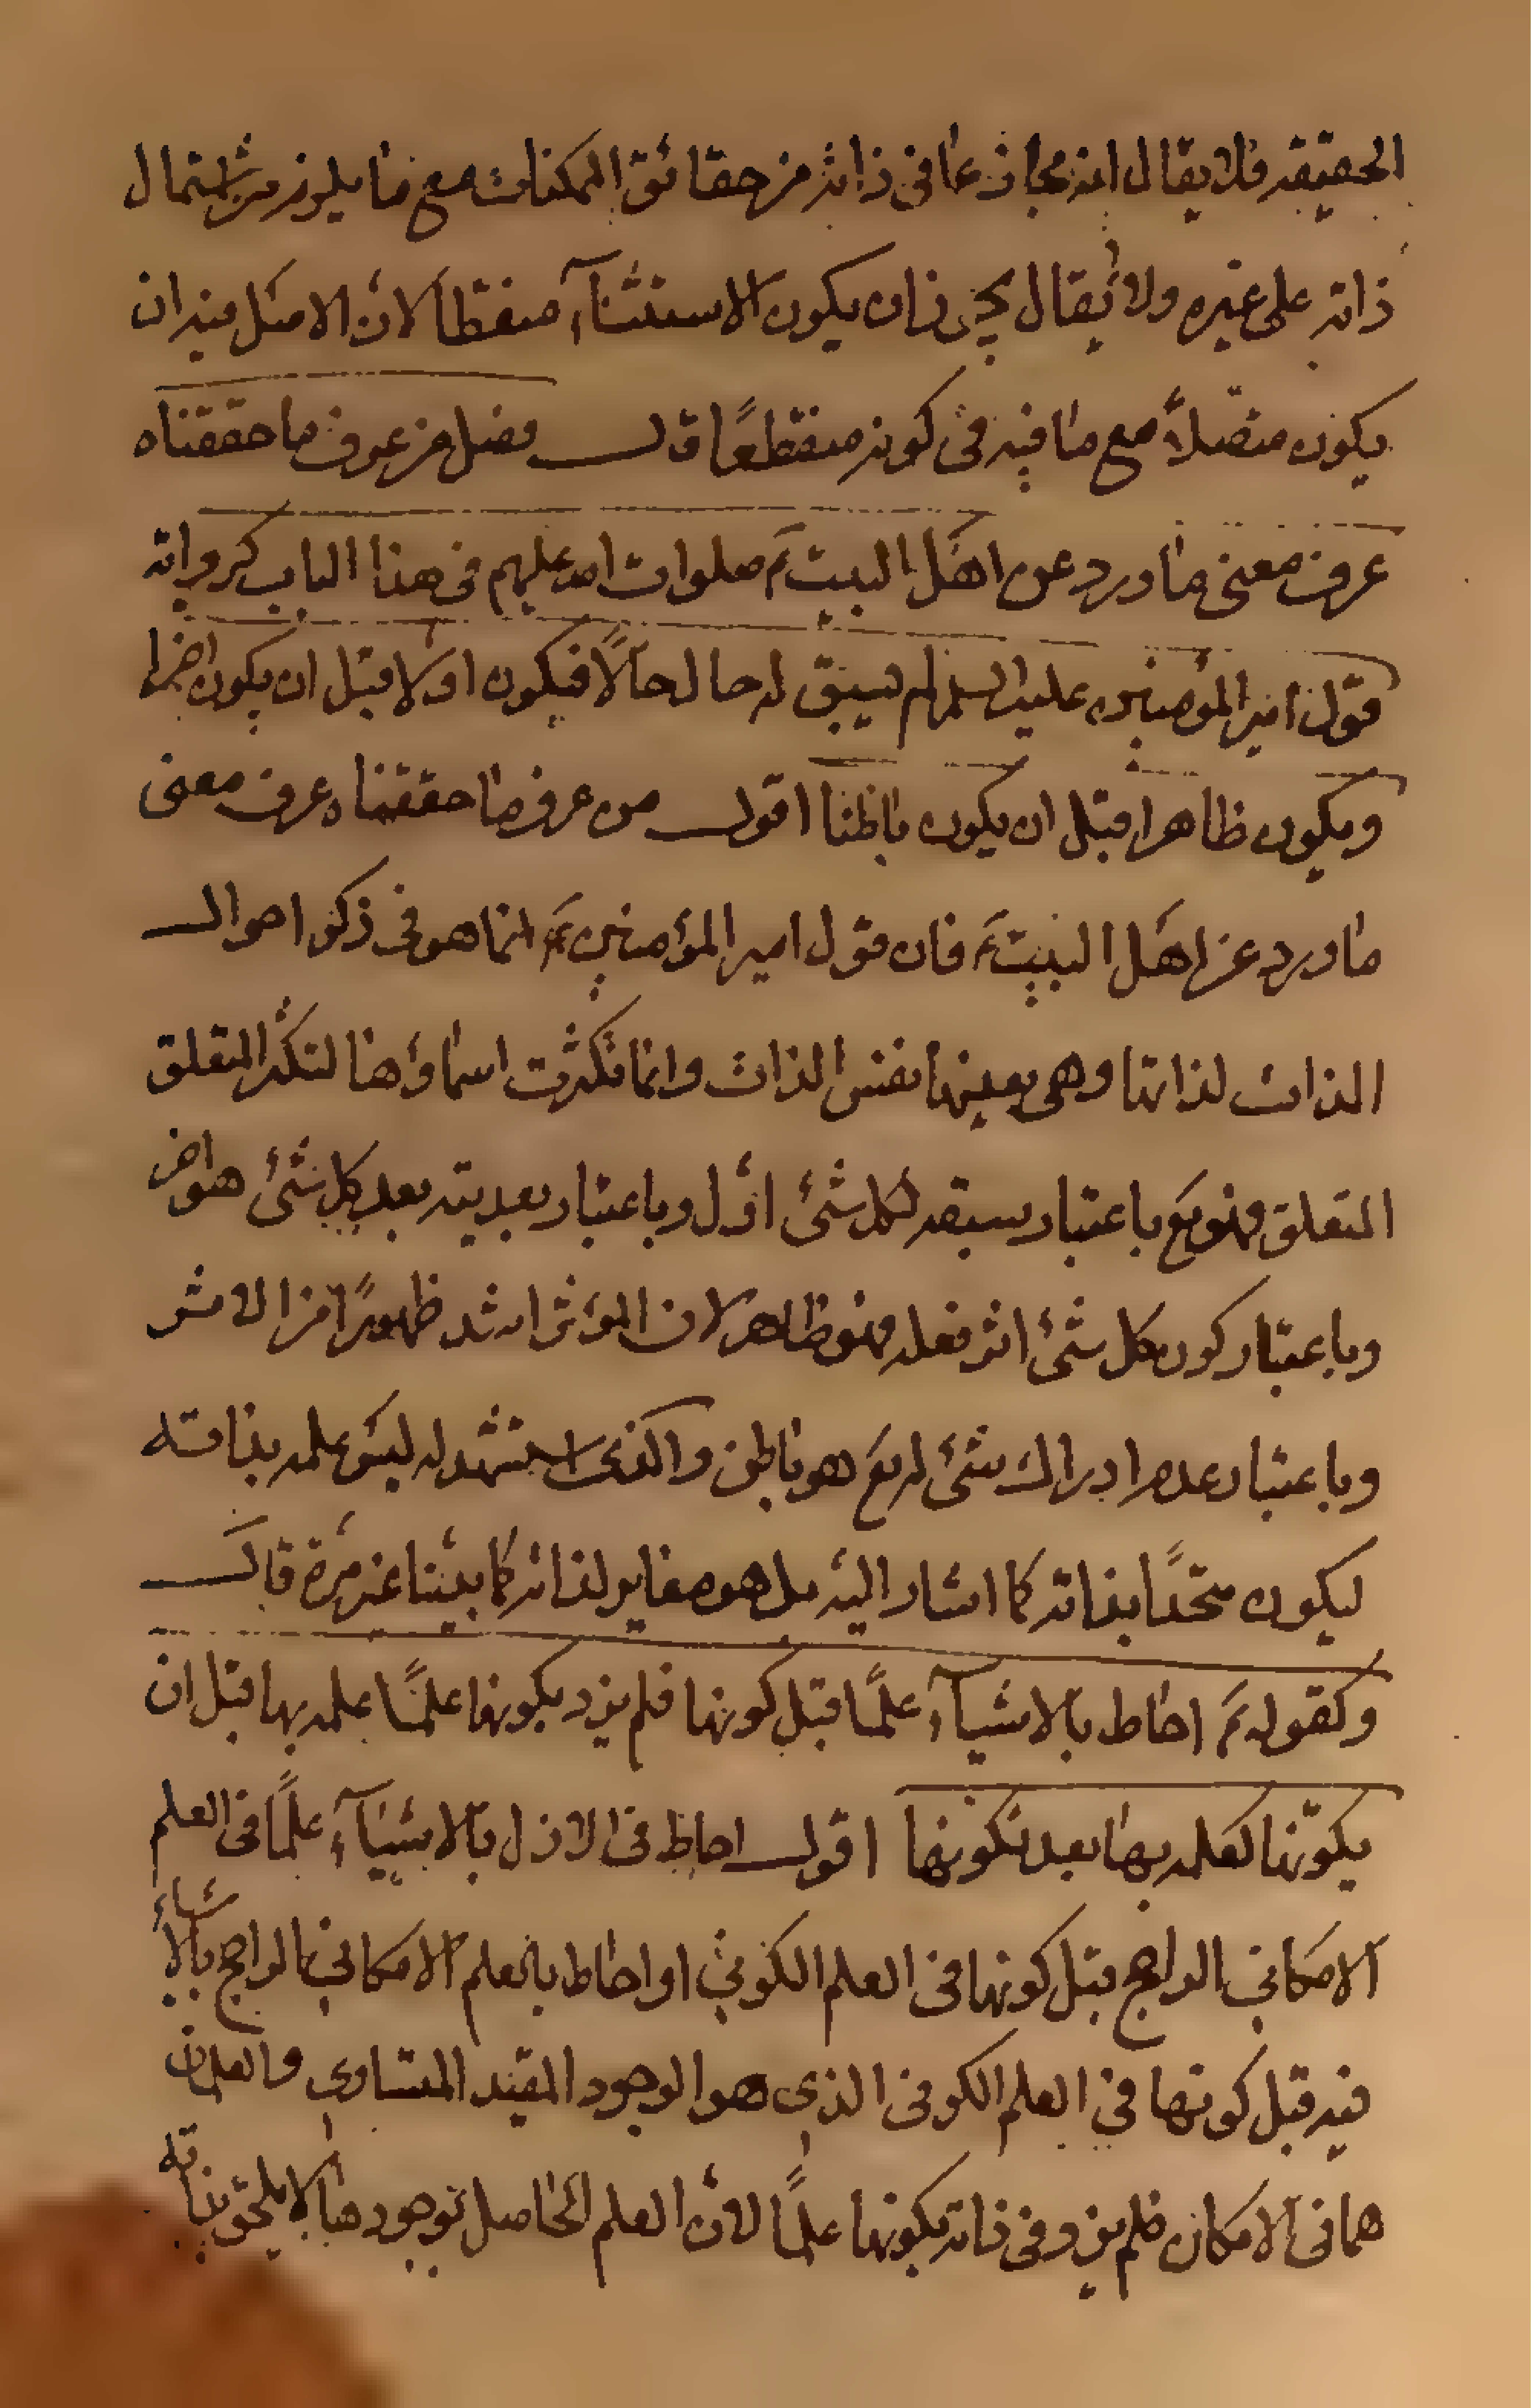 الحقيقة فلا يقال انه مجاز عما في ذاته من حقائق الممكنات مع ما يلزم من اشتمال
ذاته على غيره ولا يقال يجوز ان يكون الاستثناء منقطعا لان الاصل فيه ان
يكون متصلاً مع ما فيه في كونه منقطعًا قال فصل من عرف ما حققناه
عرف معنى ما ورد عن اهل البيت صلوات الله عليهم في هذا الباب كرواية
قول امير المؤمنين عليه السلم لم يسبق له حال حالاً فيكون اولا قبل ان يكون اخرا
ويكون ظاهرا قبل ان يكون باطنا اقول من عرف ما حققناه عرف معنى
ما ورد عن اهل البيت ع فان قول امير المؤمنين ع انما هو في ذكر احوال
الذات لذاتها وهي بعينها نفس الذات وانما تكثرت اسماؤها لتكثر المتعلق
المتعلق فهو تع باعتبار سبقه لكل شئ اوّل وباعتبار بعديته بعد كل شئ هو اخر
وباعتبار كون كل شئ اثر فعله فهو ظاهر لان المؤثر اشد ظهورًا من الاثر
وباعتبار عدم ادراك شئ له تع هو باطن والذي استشهد له ليس علمه بذاته
ليكون متحدًا بذاته كما اشار اليه بل هو مغاير لذاته كما بيّنا غير مرة قال
وكقوله ع احاط بالاشيآء علمًا قبل كونها فلم يزدد بكونها علمًا علمه بها قبل ان
يكوّنها كعلمه بها بعد تكوينها اقول احاط في الازل بالاشيآء علمًا في العلم
الامكاني الراجح قبل كونها في العلم الكوني او احاط بالعلم الامكاني الراجح بالاشياء
فيه قبل كونها في العلم الكوني الذي هو الوجود المقيد المتساوي والعلمان
هما في الامكان فلم يزدد في ذاته بكونها علمًا لان العلم الحاصل بوجودها لا يلحق بذاته